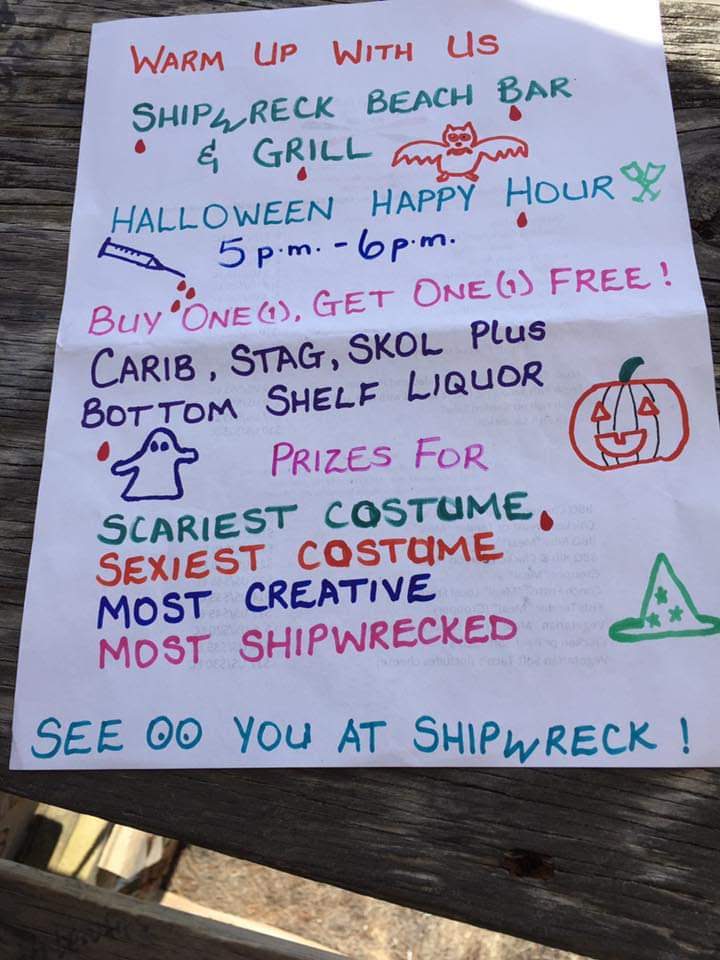 WARM UP WITH US
SHIPWRECK BEACH BAR
& GRILL
HALLOWEEN HAPPY HOUR
5 p.m. - 6 p.m.
BUY ONE (1), GET ONE (1) FREE!
CARIB, STAG, SKOL Plus
BOTTOM SHELF LIQUOR
PRIZES FOR
SCARIEST COSTUME
SEXIEST COSTUME
MOST CREATIVE
MOST SHIPWRECKED
SEE YOU AT SHIPWRECK!